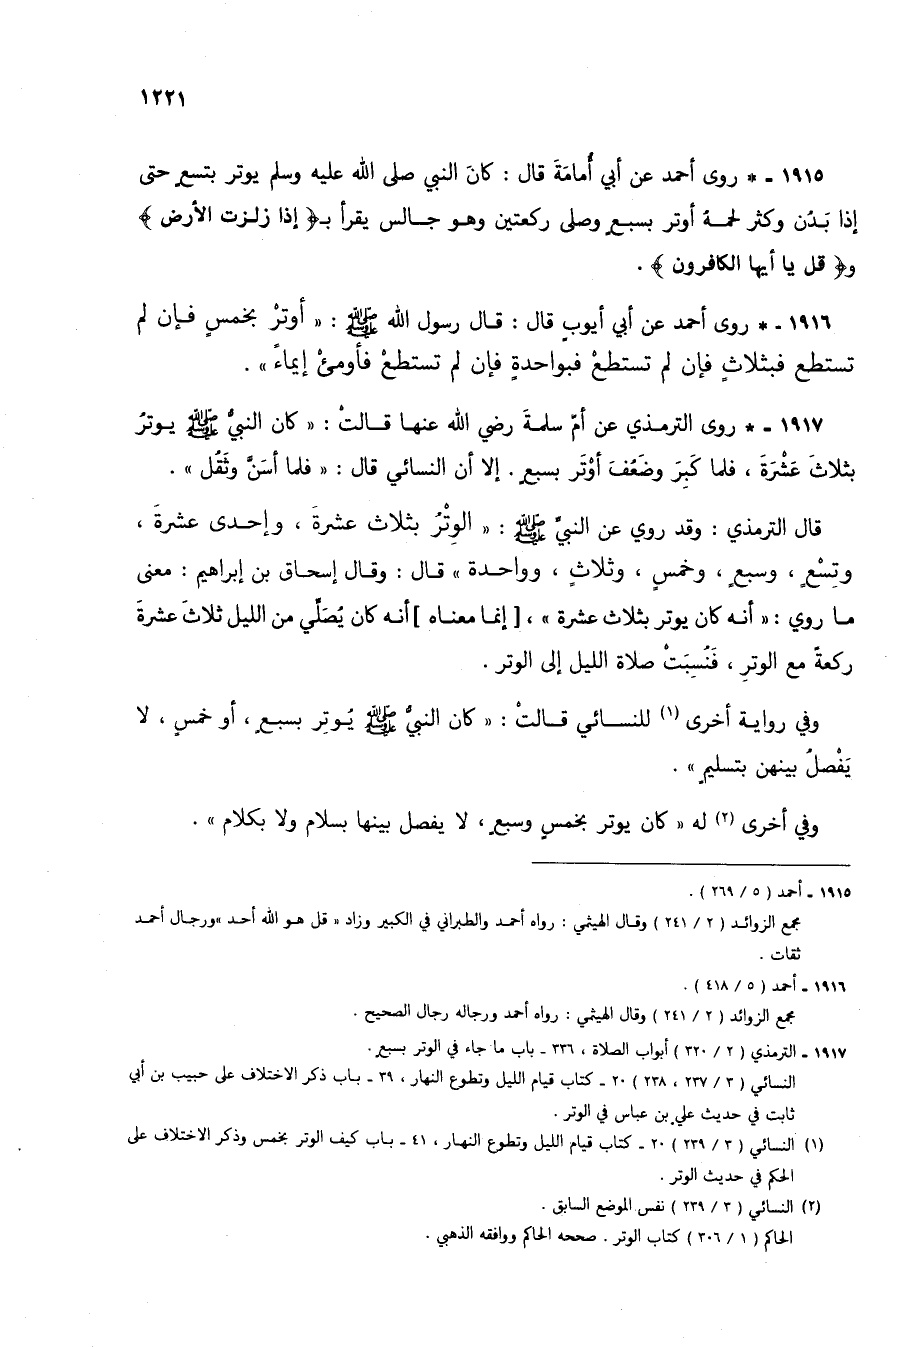 ١٢٢١
١٩١٥ - * روى أحمد عن أبي أُمامَةَ قال : كانَ النبي صلى الله عليه وسلم يوتر بتسعٍ حتى
إذا بَدُن وكثر لحمهُ أوتر بسبعٍ وصلى ركعتين وهو جالس يقرأ بـ﴿ إذا زلزت الأرض ﴾
و﴿ قل يا أيها الكافرون ﴾ .
١٩١٦ - * روى أحمد عن أبي أيوبٍ قال : قال رسول الله ﷺ : « أوترْ بخمسٍ فإن لم
تستطع فبثلاثٍ فإن لم تستطعْ فبواحدةٍ فإن لم تستطعْ فأومئْ إيماءً » .
١٩١٧ - * روى الترمذي عن أمّ سلمةَ رضي الله عنها قالتْ : « كان النبيُّ ﷺ يوترُ
بثلاثَ عَشْرَةَ ، فلما كَبِرَ وضَعُفَ أوْتَر بسبعٍ . إلا أن النسائي قال : « فلما أسَنَّ وثَقُل » .
قال الترمذي : وقد روي عن النبيِّ ﷺ : « الوِتْرُ بثلاث عشرةَ ، وإحدى عشرةَ ،
وتِسْعٍ ، وسبعٍ ، وخمسٍ ، وثلاثٍ ، وواحدة » قال : وقال إسحاق بن إبراهيم : معنى
ما روي : « أنه كان يوتر بثلاث عشرة » ، [ إنما معناه ] أنه كان يُصَلِّي من الليل ثلاثَ عشرةَ
ركعةً مع الوترِ ، فَنُسِبَتْ صلاة الليل إلى الوتر .
وفي رواية أخرى (١) للنسائي قالتْ : « كان النبيُّ ﷺ يُوتِر بسبعٍ ، أو خمسٍ ، لا
يَفْصلُ بينهن بتسليمٍ » .
وفي أخرى (٢) له « كان يوتر بخمسٍ وسبعٍ ، لا يفصل بينها بسلام ولا بكلام » .
١٩١٥ - أحمد ( ٥ / ٢٦٩ ) .
مجمع الزوائد ( ٢ / ٢٤١ ) وقال الهيثمي : رواه أحمد والطبراني في الكبير وزاد « قل هو الله أحد »ورجال أحمد
ثقات .
١٩١٦ - أحمد ( ٥ / ٤١٨ ) .
مجمع الزوائد ( ٢ / ٢٤١ ) وقال الهيثمي : رواه أحمد ورجاله رجال الصحيح .
١٩١٧ - الترمذي ( ٢ / ٣٢٠ ) أبواب الصلاة ، ٣٣٦ - باب ما جاء في الوتر بسبع .
النسائي ( ٣ / ٢٣٧ ، ٢٣٨ ) ٢٠ - كتاب قيام الليل وتطوع النهار ، ٣٩ - باب ذكر الاختلاف على حبيب بن أبي
ثابت في حديث علي بن عباس في الوتر .
(١) النسائي ( ٣ / ٢٣٩ ) ٢٠ - كتاب قيام الليل وتطوع النهار ، ٤١ - باب كيف الوتر بخمس وذكر الاختلاف على
الحكم في حديث الوتر .
(٢) النسائي ( ٣ / ٢٣٩ ) نفس الموضع السابق .
الحاكم ( ١ / ٣٠٦ ) كتاب الوتر . صححه الحاكم ووافقه الذهبي .